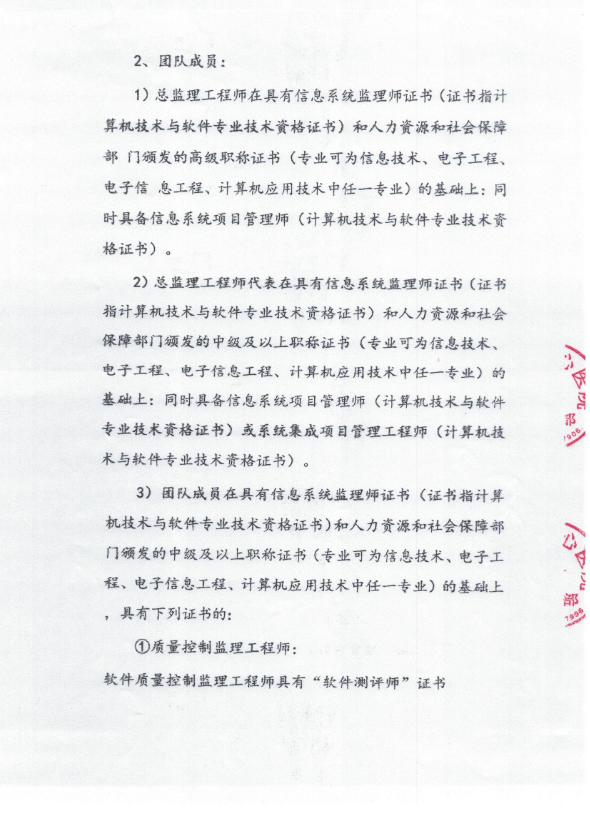 2、团队成员：
1）总监理工程师在具有信息系统监理师证书（证书指计
算机技术与软件专业技术资格证书）和人力资源和社会保障
部 门颁发的高级职称证书（专业可为信息技术、电子工程、
电子信 息工程、计算机应用技术中任一专业）的基础上：同
时具备信息系统项目管理师（计算机技术与软件专业技术资
格证书）。
2）总监理工程师代表在具有信息系统监理师证书（证书
指计算机技术与软件专业技术资格证书）和人力资源和社会
保障部门颁发的中级及以上职称证书（专业可为信息技术、
电子工程、电子信息工程、计算机应用技术中任一专业）的
基础上：同时具备信息系统项目管理师（计算机技术与软件
专业技术资格证书）或系统集成项目管理工程师（计算机技
术与软件专业技术资格证书）。
3）团队成员在具有信息系统监理师证书（证书指计算
机技术与软件专业技术资格证书)和人力资源和社会保障部
门颁发的中级及以上职称证书（专业可为信息技术、电子工
程、电子信息工程、计算机应用技术中任一专业）的基础上
，具有下列证书的：
①质量控制监理工程师：
软件质量控制监理工程师具有“软件测评师”证书